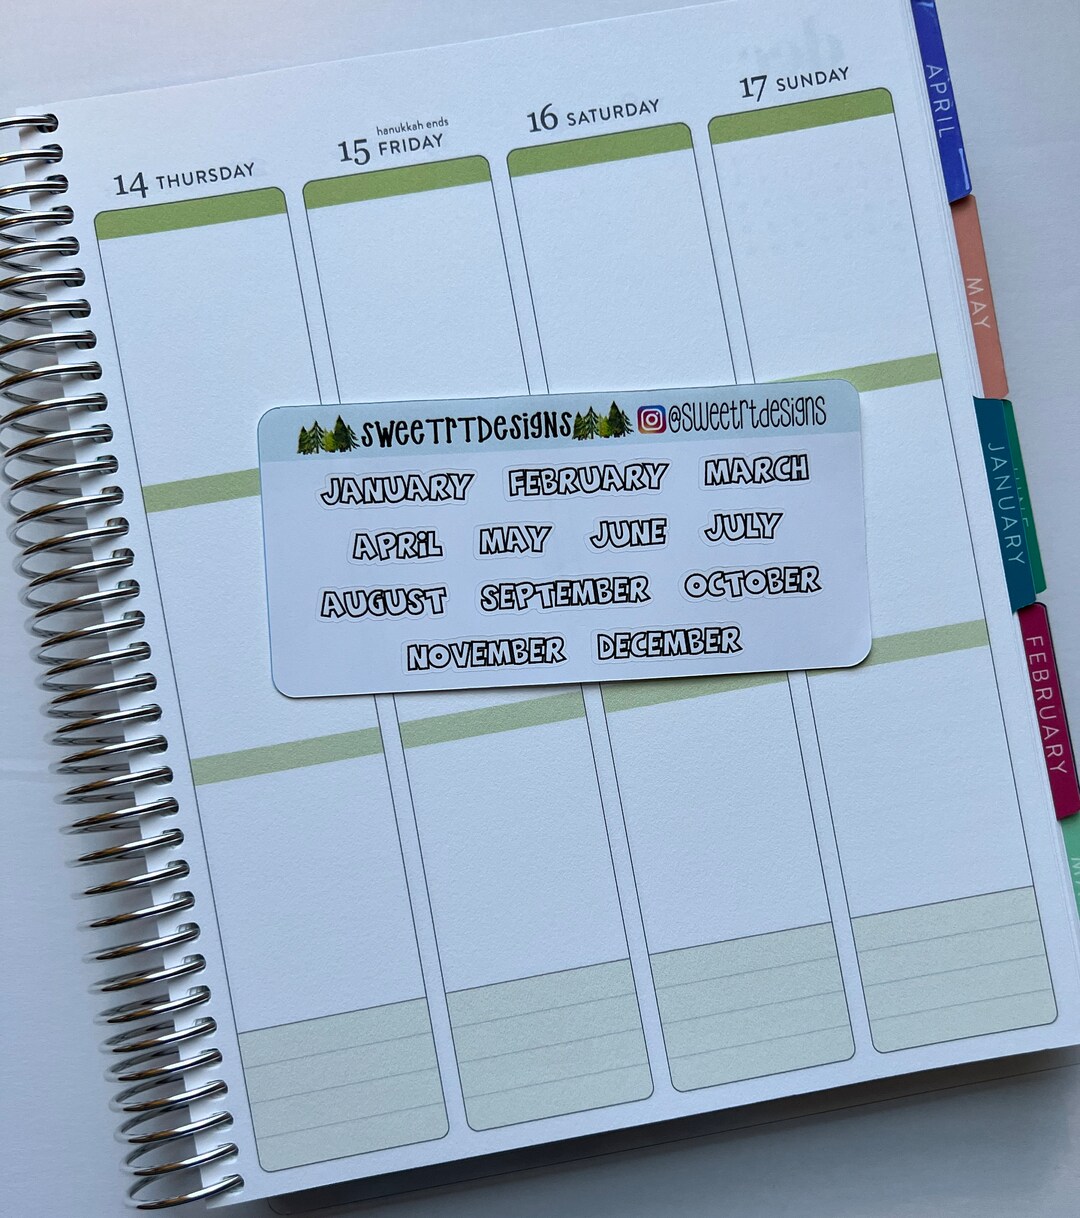 14 THURSDAY
hanukkah ends
15 FRIDAY
16 SATURDAY
17 SUNDAY
SWEETRTDESIGNS @SWEETRTDESIGNS
JANUARY FEBRUARY MARCH
APRIL MAY JUNE JULY
AUGUST SEPTEMBER OCTOBER
NOVEMBER DECEMBER
APRIL
MAY
JUNE
JANUARY
FEBRUARY